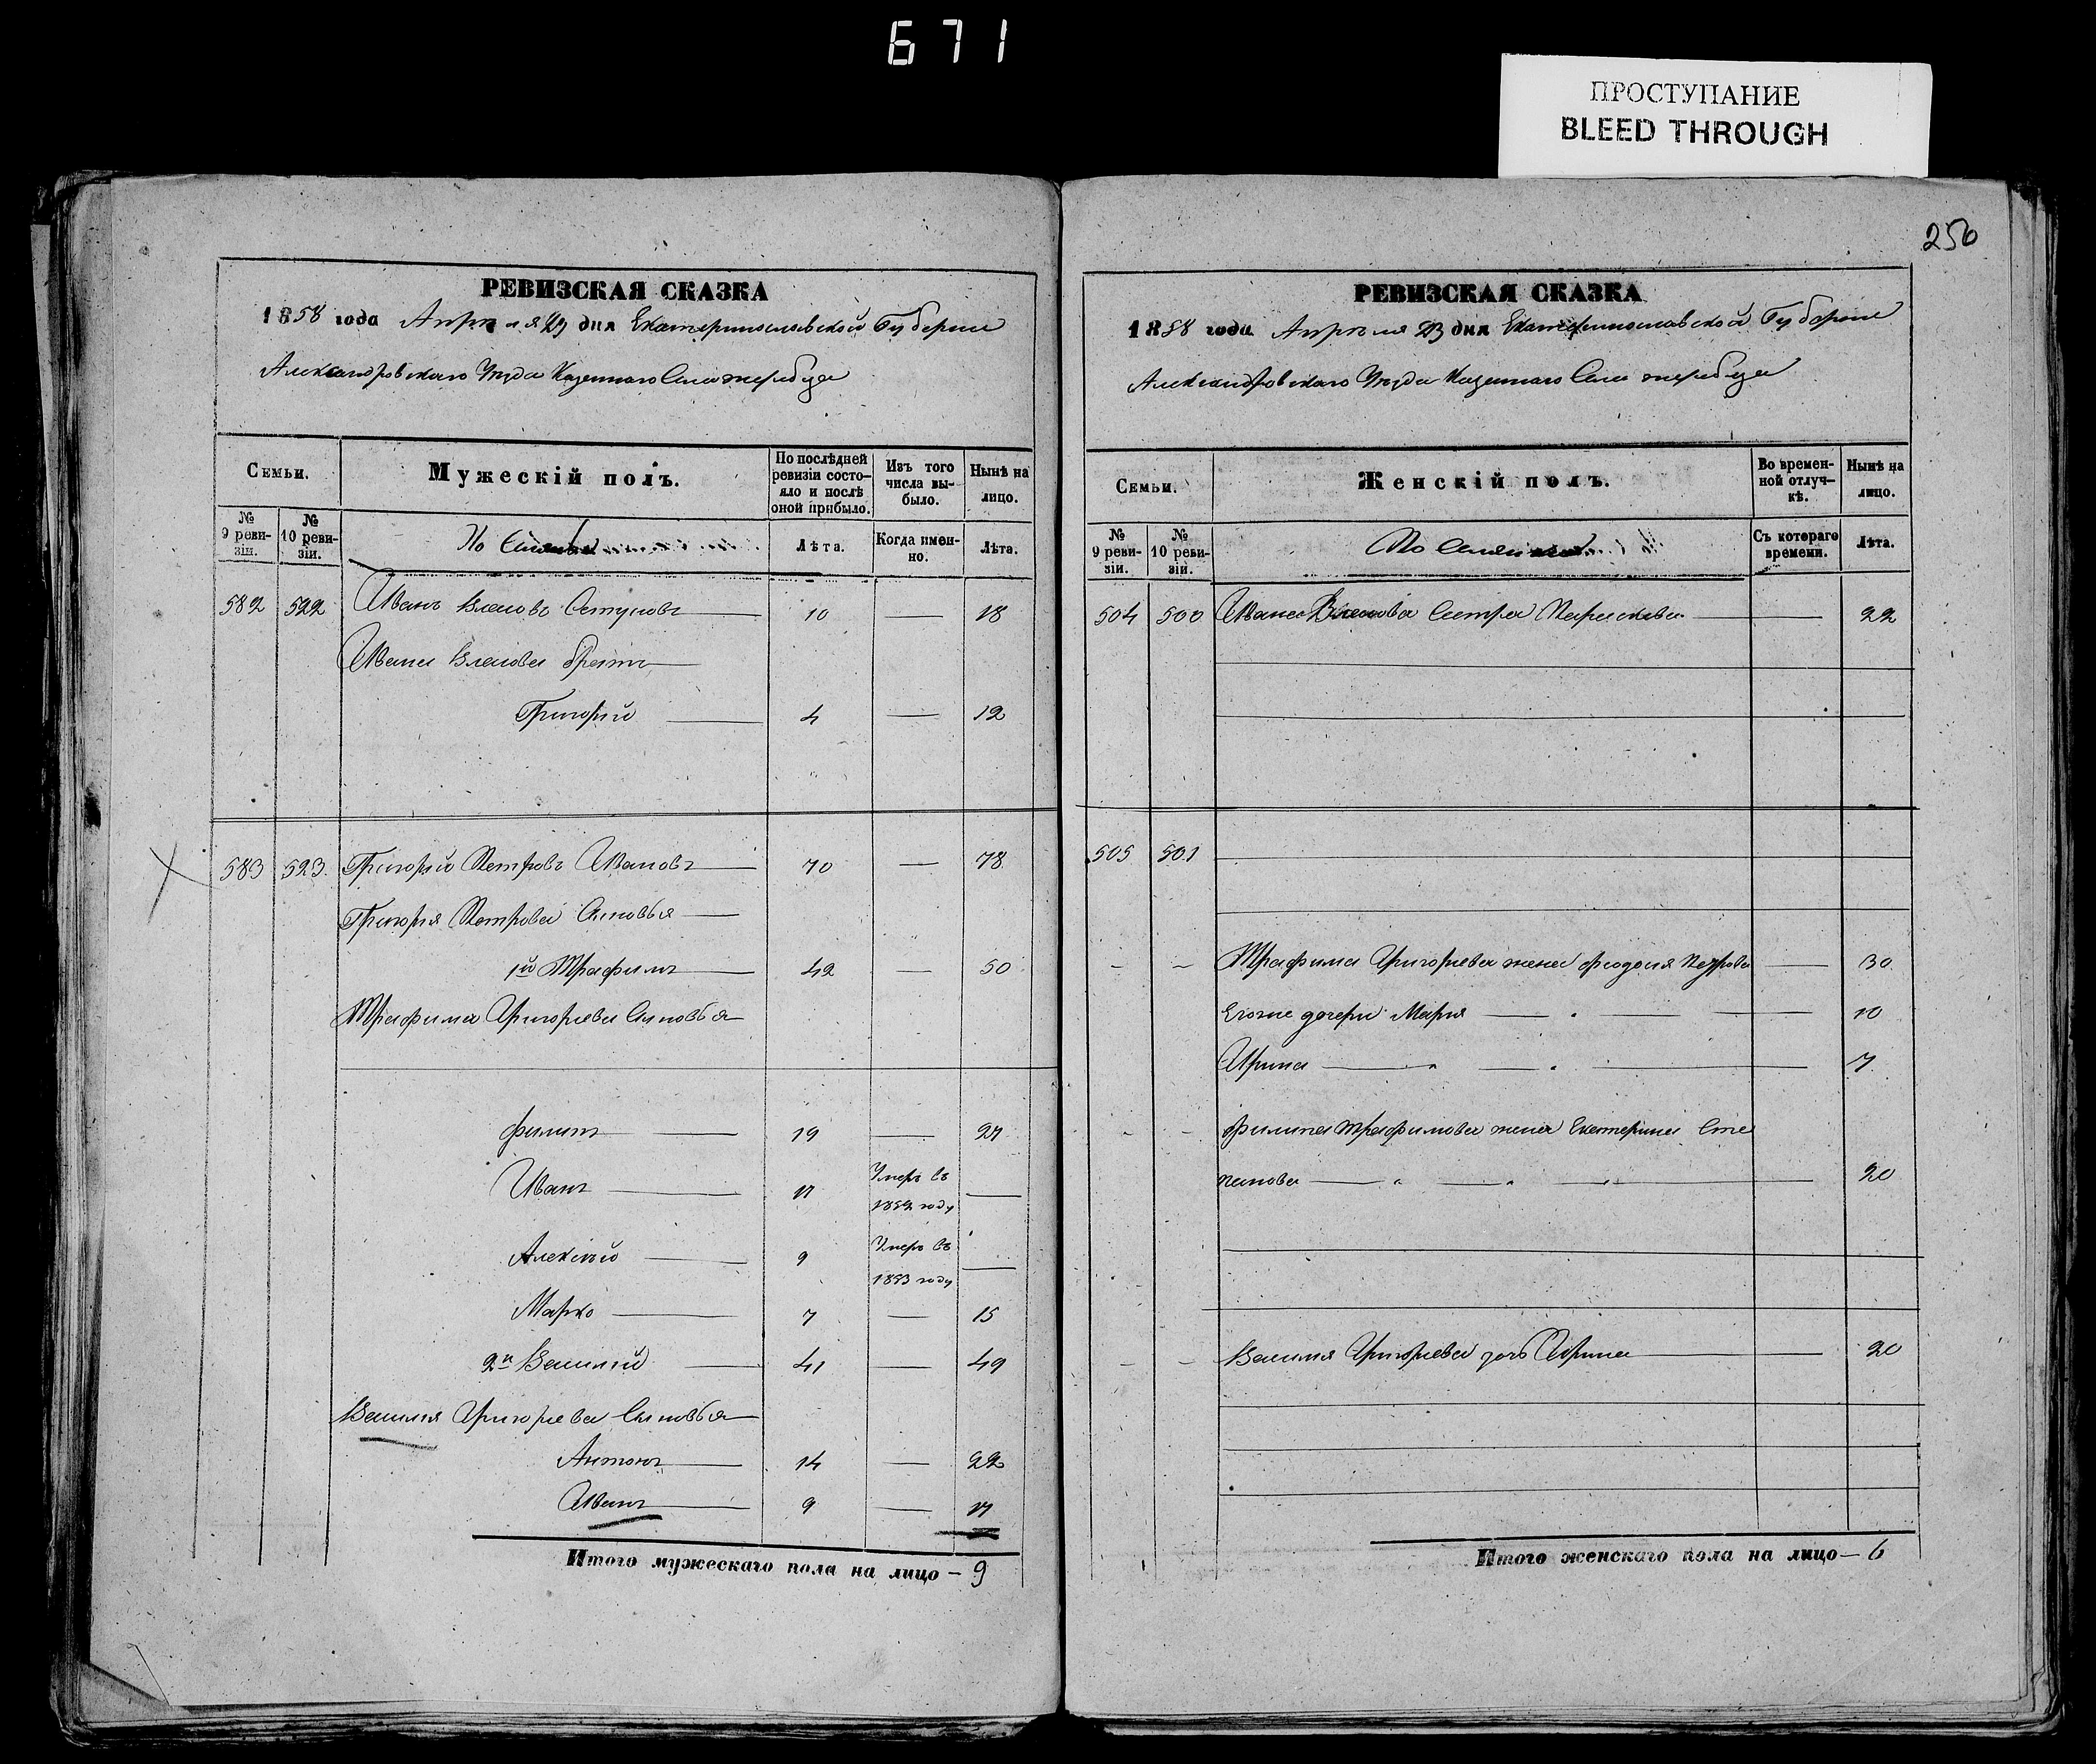 671
ПРОСТУПАНИЕ
BLEED THROUGH
250
РЕВИЗСКАЯ СКАЗКА
1858 года Апреля 23 дня Екатеринославской Губернии
Александровскаго Уезда Казеннаго Села жеребца
Семьи.
Мужескій полъ.
По послѣдней ревизіи состояло и послѣ оной прибыло.
Изъ того числа выбыло.
Нынѣ на лицо.
№ 9 ревизіи.
№ 10 ревизіи.
Лѣта.
Когда именно.
Лѣта.
582 522 Иванъ Власовъ 10 — 18
Ивана Власова братъ
Григорій 4 — 12
583 523 Григорій Петровъ Ивановъ 70 — 78
Григорія Петрова сыновья
1й Трафимъ 42 — 50
Трафима Григорьева сыновья
Филипъ 19 — 27
Иванъ 17 Умеръ въ 1852 году —
Алексѣй 9 Умеръ въ 1853 году —
Марко 7 — 15
2й Василій 41 — 49
Василия Григорьева Сыновья
Антонъ 14 — 22
Иванъ 9 — 17
Итого мужескаго пола на лицо — 9
РЕВИЗСКАЯ СКАЗКА
1858 года Апреля 23 дня Екатеринославской Губернии
Александровскаго Уезда Казеннаго Села жеребца
Семьи.
Женскій полъ.
Во временной отлучкѣ.
Нынѣ на лицо.
№ 9 ревизіи.
№ 10 ревизіи.
Съ котораго времени.
Лѣта.
504 500 Ивана Власова Сестра Параскева — 22
505 501
Трафима Григорьева жена Феодосия Петрова — 30
Егоже дочери Мария — 10
Ирина — 7
Филипа Трафимова жена Екатерина Сте
панова — 20
Василия Григорьева дочь Ирина — 20
Итого женскаго пола на лицо — 6